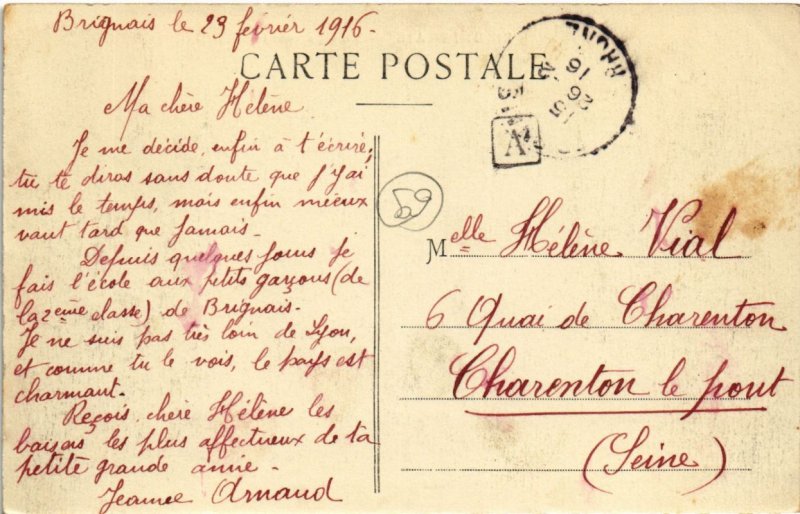 Brignais le 23 février 1916-
CARTE POSTALE
Ma chère Hélène.
Je me décide enfin à t'écrire,
tu te diras sans doute que j'y ai
mis le temps, mais enfin mieux
vaut tard que jamais.
Depuis quelques jours je
fais l'école aux petits garçons (de
la 2ème classe) de Brignais.
Je ne suis pas très loin de Lyon,
et comme tu le vois, le pays est
charmant.
Reçois, chère Hélène les
baisers les plus affectueux de ta
petite grande amie-
Jeanne Arnaud
59
RHONE
A
Melle Hélène Vial
6 Quai de Charenton
Charenton le pont
(Seine)